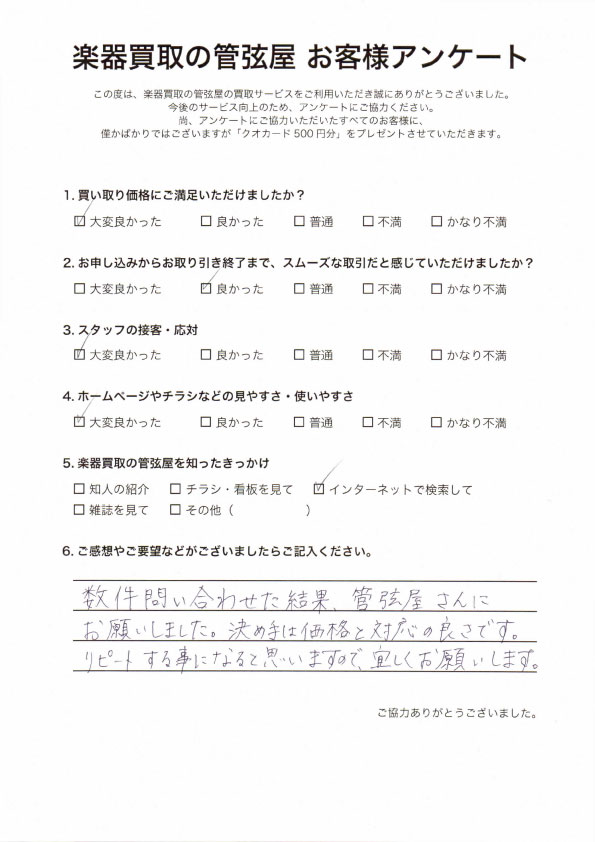 楽器買取の管弦屋 お客様アンケート
この度は、楽器買取の管弦屋の買取サービスをご利用いただき誠にありがとうございました。
今後のサービス向上のため、アンケートにご協力ください。
尚、アンケートにご協力いただいたすべてのお客様に、
僅かばかりではございますが「クオカード500円分」をプレゼントさせていただきます。
1. 買い取り価格にご満足いただけましたか？
☑ 大変良かった □ 良かった □ 普通 □ 不満 □ かなり不満
2. お申し込みからお取り引き終了まで、スムーズな取引だと感じていただけましたか？
□ 大変良かった ☑ 良かった □ 普通 □ 不満 □ かなり不満
3. スタッフの接客・応対
☑ 大変良かった □ 良かった □ 普通 □ 不満 □ かなり不満
4. ホームページやチラシなどの見やすさ・使いやすさ
☑ 大変良かった □ 良かった □ 普通 □ 不満 □ かなり不満
5. 楽器買取の管弦屋を知ったきっかけ
□ 知人の紹介 □ チラシ・看板を見て ☑ インターネットで検索して
□ 雑誌を見て □ その他（　　　　　　）
6. ご感想やご要望などがございましたらご記入ください。
数件問い合わせた結果、管弦屋さんに
お願いしました。決め手は価格と対応の良さです。
リピートする事になると思いますので、宜しくお願いします。
ご協力ありがとうございました。